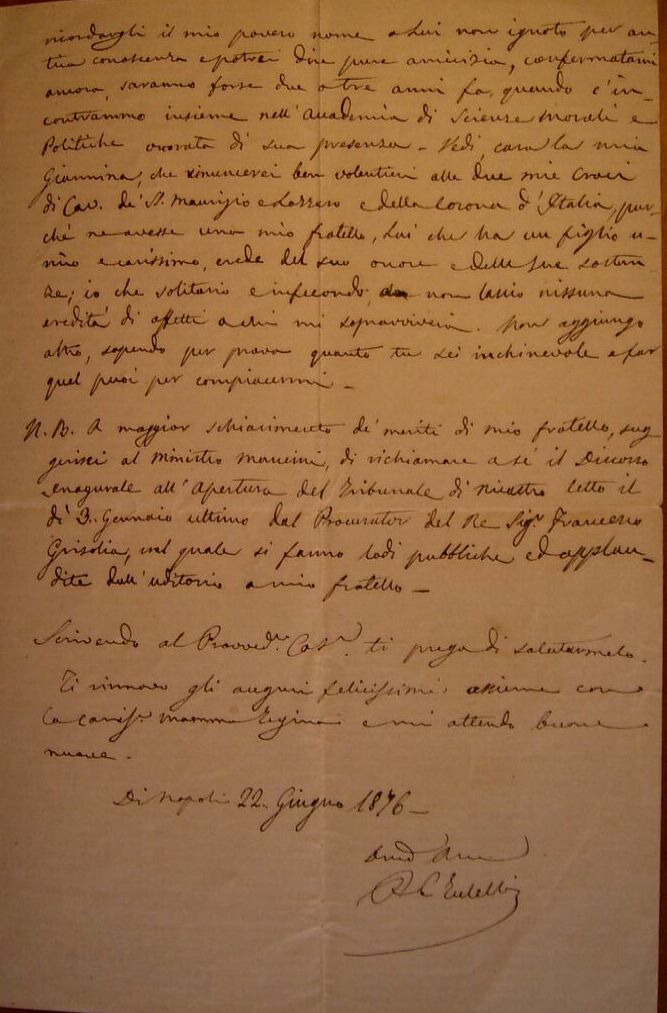 ricordargli il mio povero nome a Lui non ignoto per an-
tica conoscenza e potrei dire pure amicizia, confermatami
ancora, saranno forse due o tre anni fa, quando c'in-
contrammo insieme nell'Accademia di Scienze Morali e
Politiche onorata di sua presenza. Vedi, cara la mia
Giannina, che rinuncerei ben volentieri alle due mie Croci
di Cav. de' S. Maurizio e Lazzaro e della Corona d'Italia, pur-
ché ne avesse una mio fratello, Lui che ha un figlio u-
nico e carissimo, erede del suo onore e delle sue sostan
ze; io che solitario e infecondo, non lascio nissuna
eredità di affetti a chi mi sopravviverà. Non aggiungo
altro, sapendo per prova quanto tu sei inchinevole a far
quel puoi per compiacermi -
N. B. A maggior schiarimento de' meriti di mio fratello, sug
gerisci al Ministro Mancini, di richiamare a sé il Discorso
inaugurale all'apertura del Tribunale di Nicastro letto il
dì 3. Gennaio ultimo dal Procurator del Re Sigr. Francesco
Grisolia, nel quale si fanno lodi pubbliche ed applau-
dite dall'uditorio a mio fratello -
Scrivendo al Provvedr. ti prego di salutarmelo.
Ti rinnovo gli auguri felicissimi assieme con
la carisa. mamma Regina e mi attendo buone
nuove.
Di Napoli 22. Giugno 1876 -